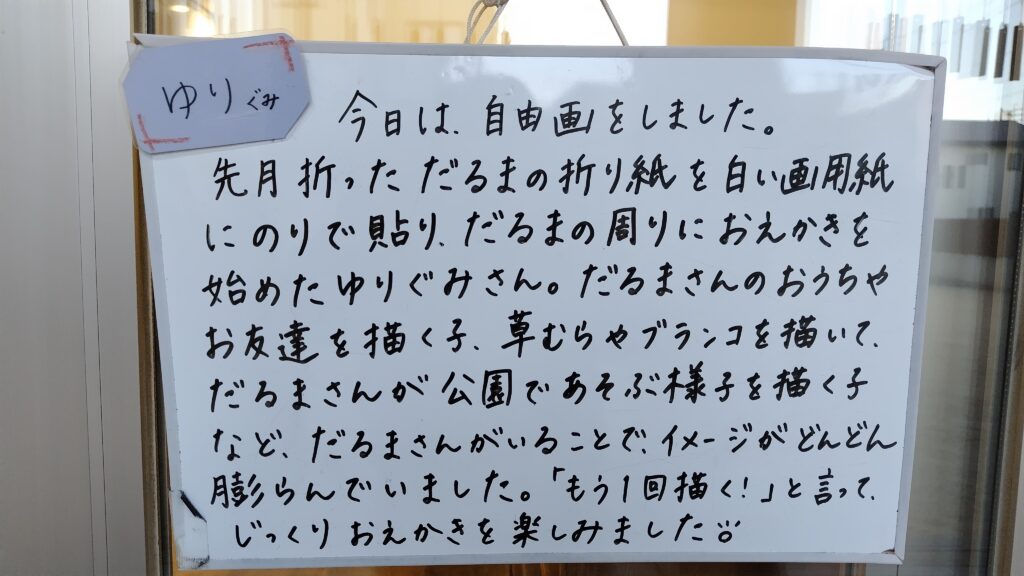 ゆりぐみ
今日は、自由画をしました。
先月折っただるまの折り紙を白い画用紙
にのりで貼り、だるまの周りにおえかきを
始めたゆりぐみさん。だるまさんのおうちや
お友達を描く子、草むらやブランコを描いて、
だるまさんが公園であそぶ様子を描く子
など、だるまさんがいることで、イメージがどんどん
膨らんでいました。「もう1回描く!」と言って、
じっくりおえかきを楽しみました